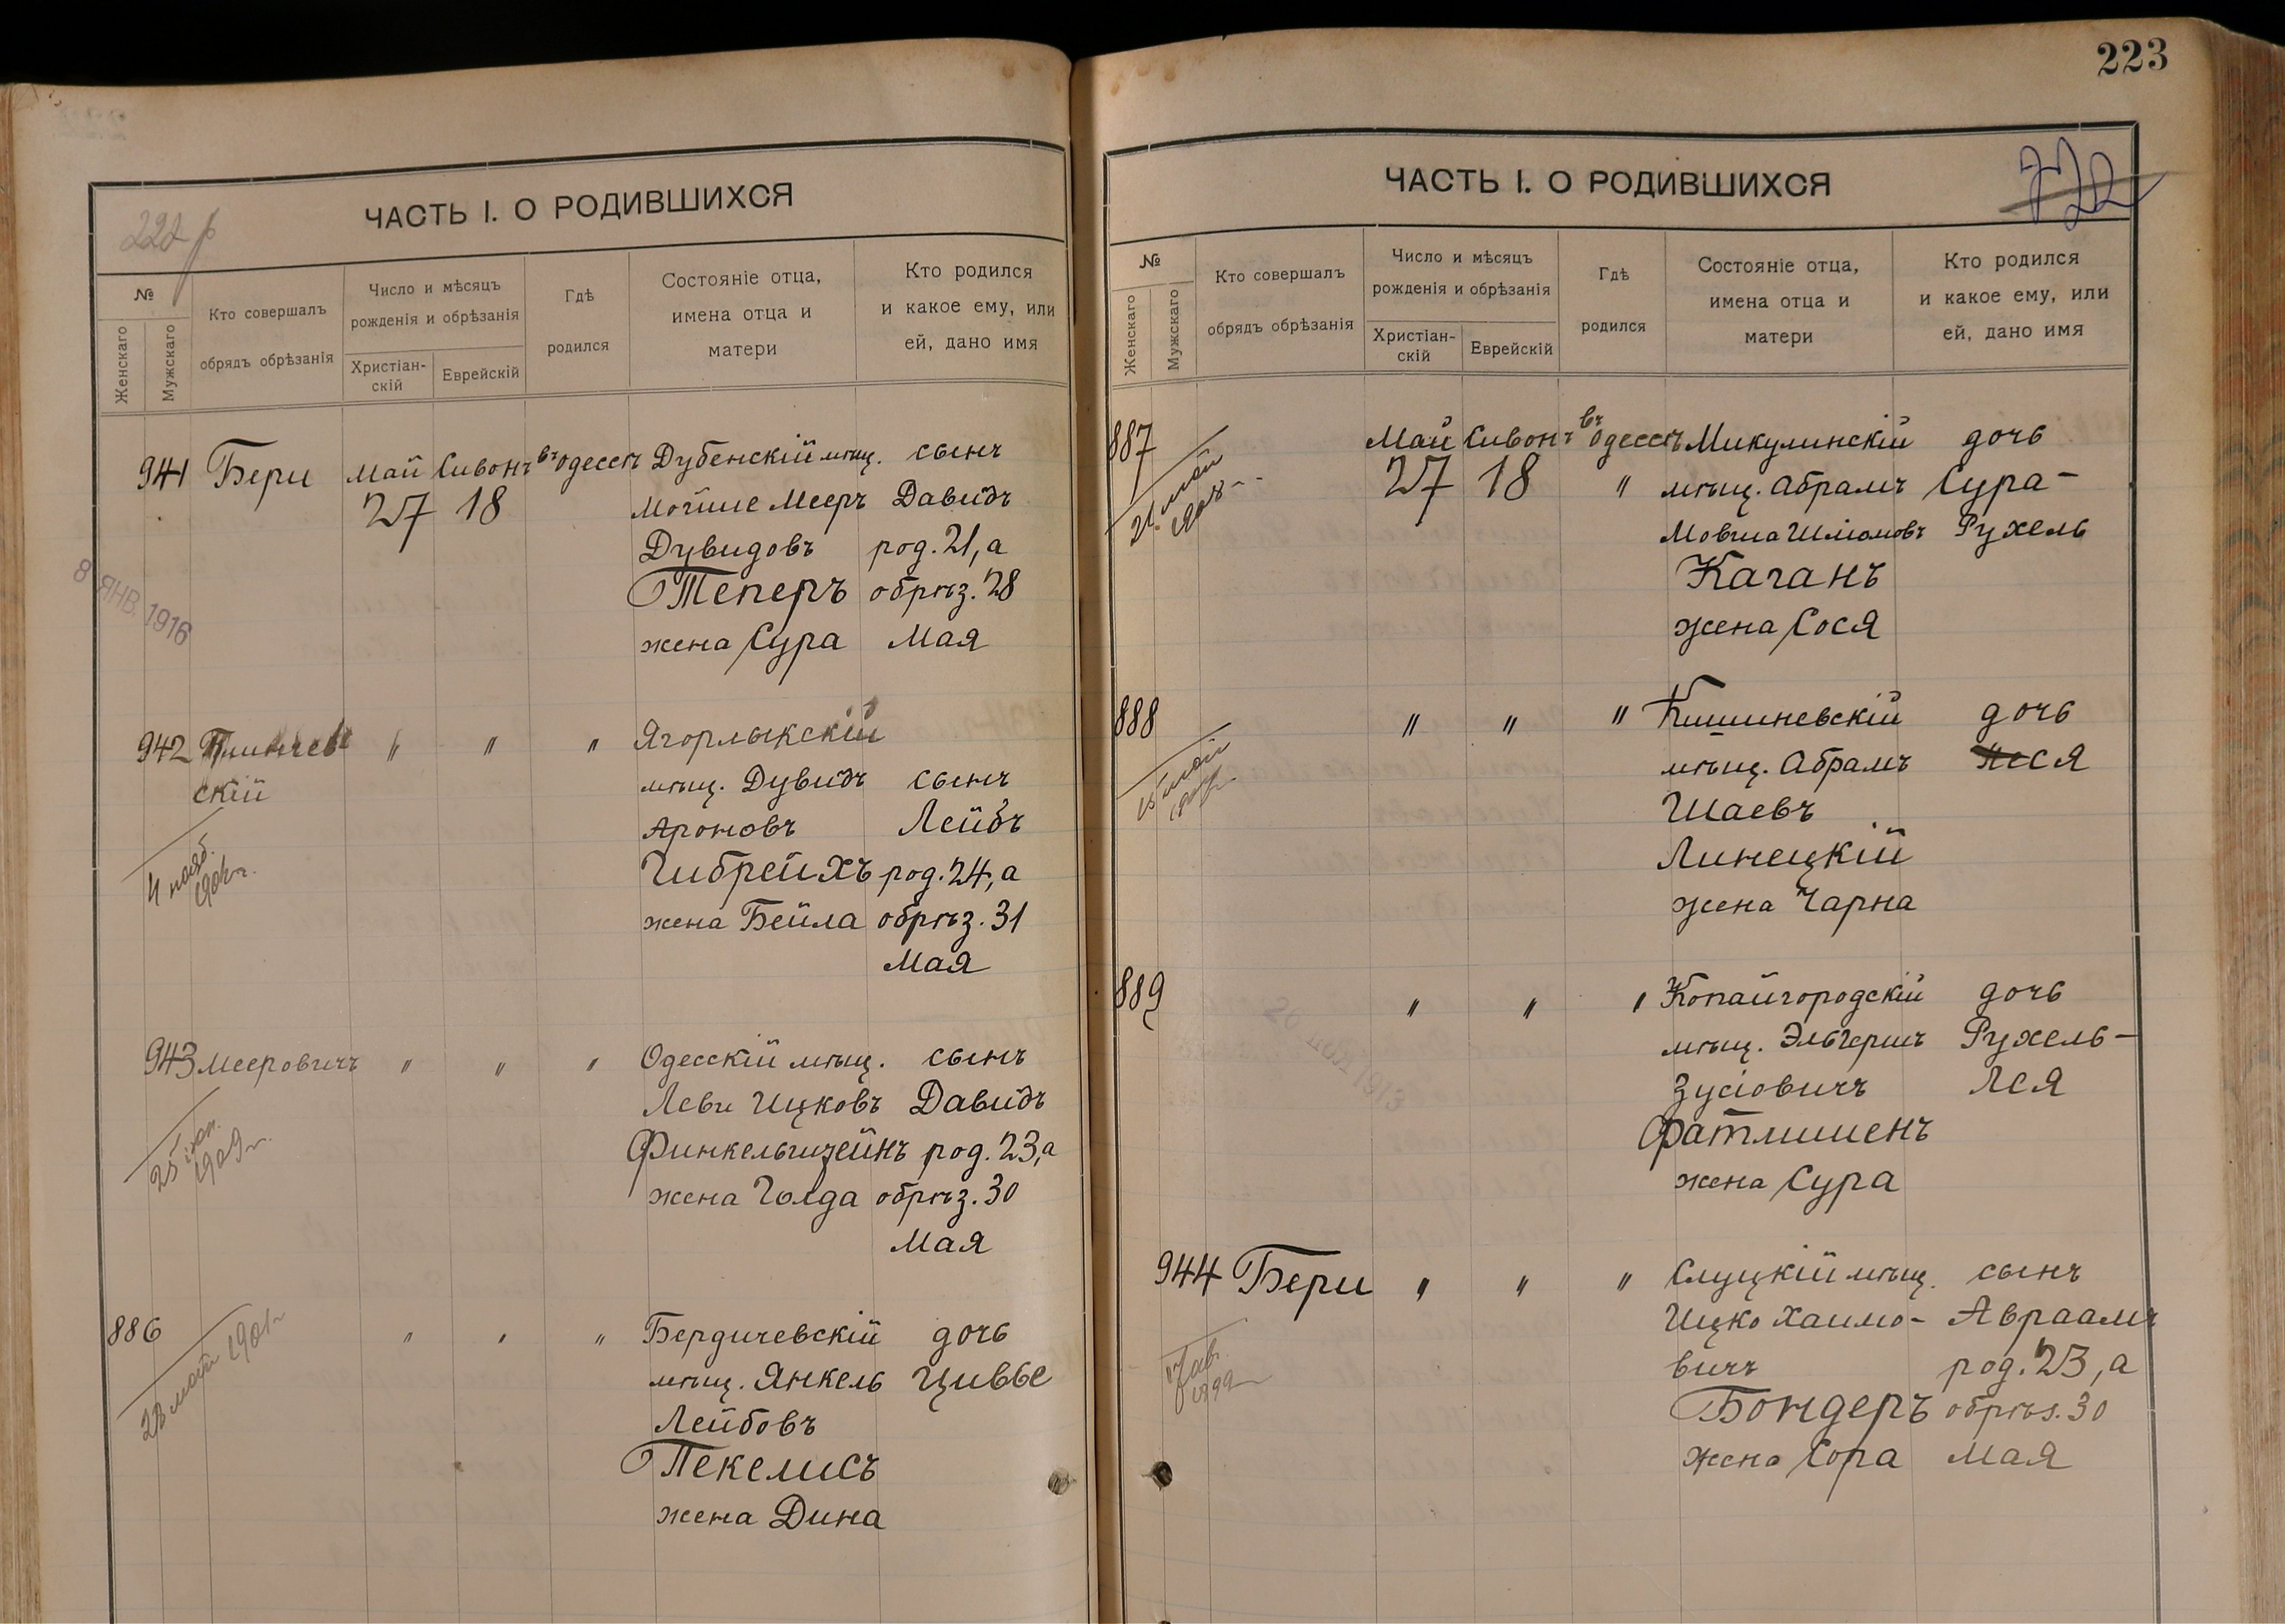 223
222 об
ЧАСТЬ I. О РОДИВШИХСЯ
№
Женскаго
Мужскаго
Кто совершалъ
обрядъ обрѣзанія
Число и мѣсяцъ
рожденія и обрѣзанія
Христіан-
скій
Еврейскій
Гдѣ
родился
Состояніе отца,
имена отца и
матери
Кто родился
и какое ему, или
ей, дано имя
941 Бери Май Сивонъ въ Одессѣ Дубенскій мѣщ. сынъ
27 18 Мойше Мееръ Давидъ
Дувидовъ род. 21, а
Теперъ обрѣз. 28
жена Сура Мая
8 ЯНВ. 1916
942 " " " Ягорлыкскій
скій мѣщ. Дувидъ сынъ
Ароновъ Лейбъ
Гибрейхъ род. 24, а
жена Бейла обрѣз. 31
Мая
4 нояб.
943 Мееровичъ " " " Одесскій мѣщ. сынъ
Леви Ицковъ Давидъ
Финкельштейнъ род. 23, а
жена Голда обрѣз. 30
Мая
25
1909 г.
886 " " " Бердичевскій дочь
мѣщ. Янкель Цивье
Лейбовъ
Пекелисъ
жена Дина
28 май 1901 г
ЧАСТЬ I. О РОДИВШИХСЯ
№
Женскаго
Мужскаго
Кто совершалъ
обрядъ обрѣзанія
Число и мѣсяцъ
рожденія и обрѣзанія
Христіан-
скій
Еврейскій
Гдѣ
родился
Состояніе отца,
имена отца и
матери
Кто родился
и какое ему, или
ей, дано имя
887 Май Сивонъ въ Одессѣ Микулинскій дочь
27 18 " мѣщ. Абрамъ Сура-
Мовша Шлiомовъ Рухель
Каганъ
жена Сося
21 май
888 " " " Кишиневскій дочь
мѣщ. Абрамъ Песя
Шаевъ
Линецкій
жена Чарна
15 май
889 " " " Копайгородскій дочь
мѣщ. Эльгершъ Рухель-
Зусіовичъ Лея
Фатлишенъ
жена Сура
1913
944 Бери " " " Слуцкій мѣщ. сынъ
Ицко Хаимо- Авраамъ
вичъ род. 23, а
Бондеръ обрѣз. 30
жена Сора Мая
1899